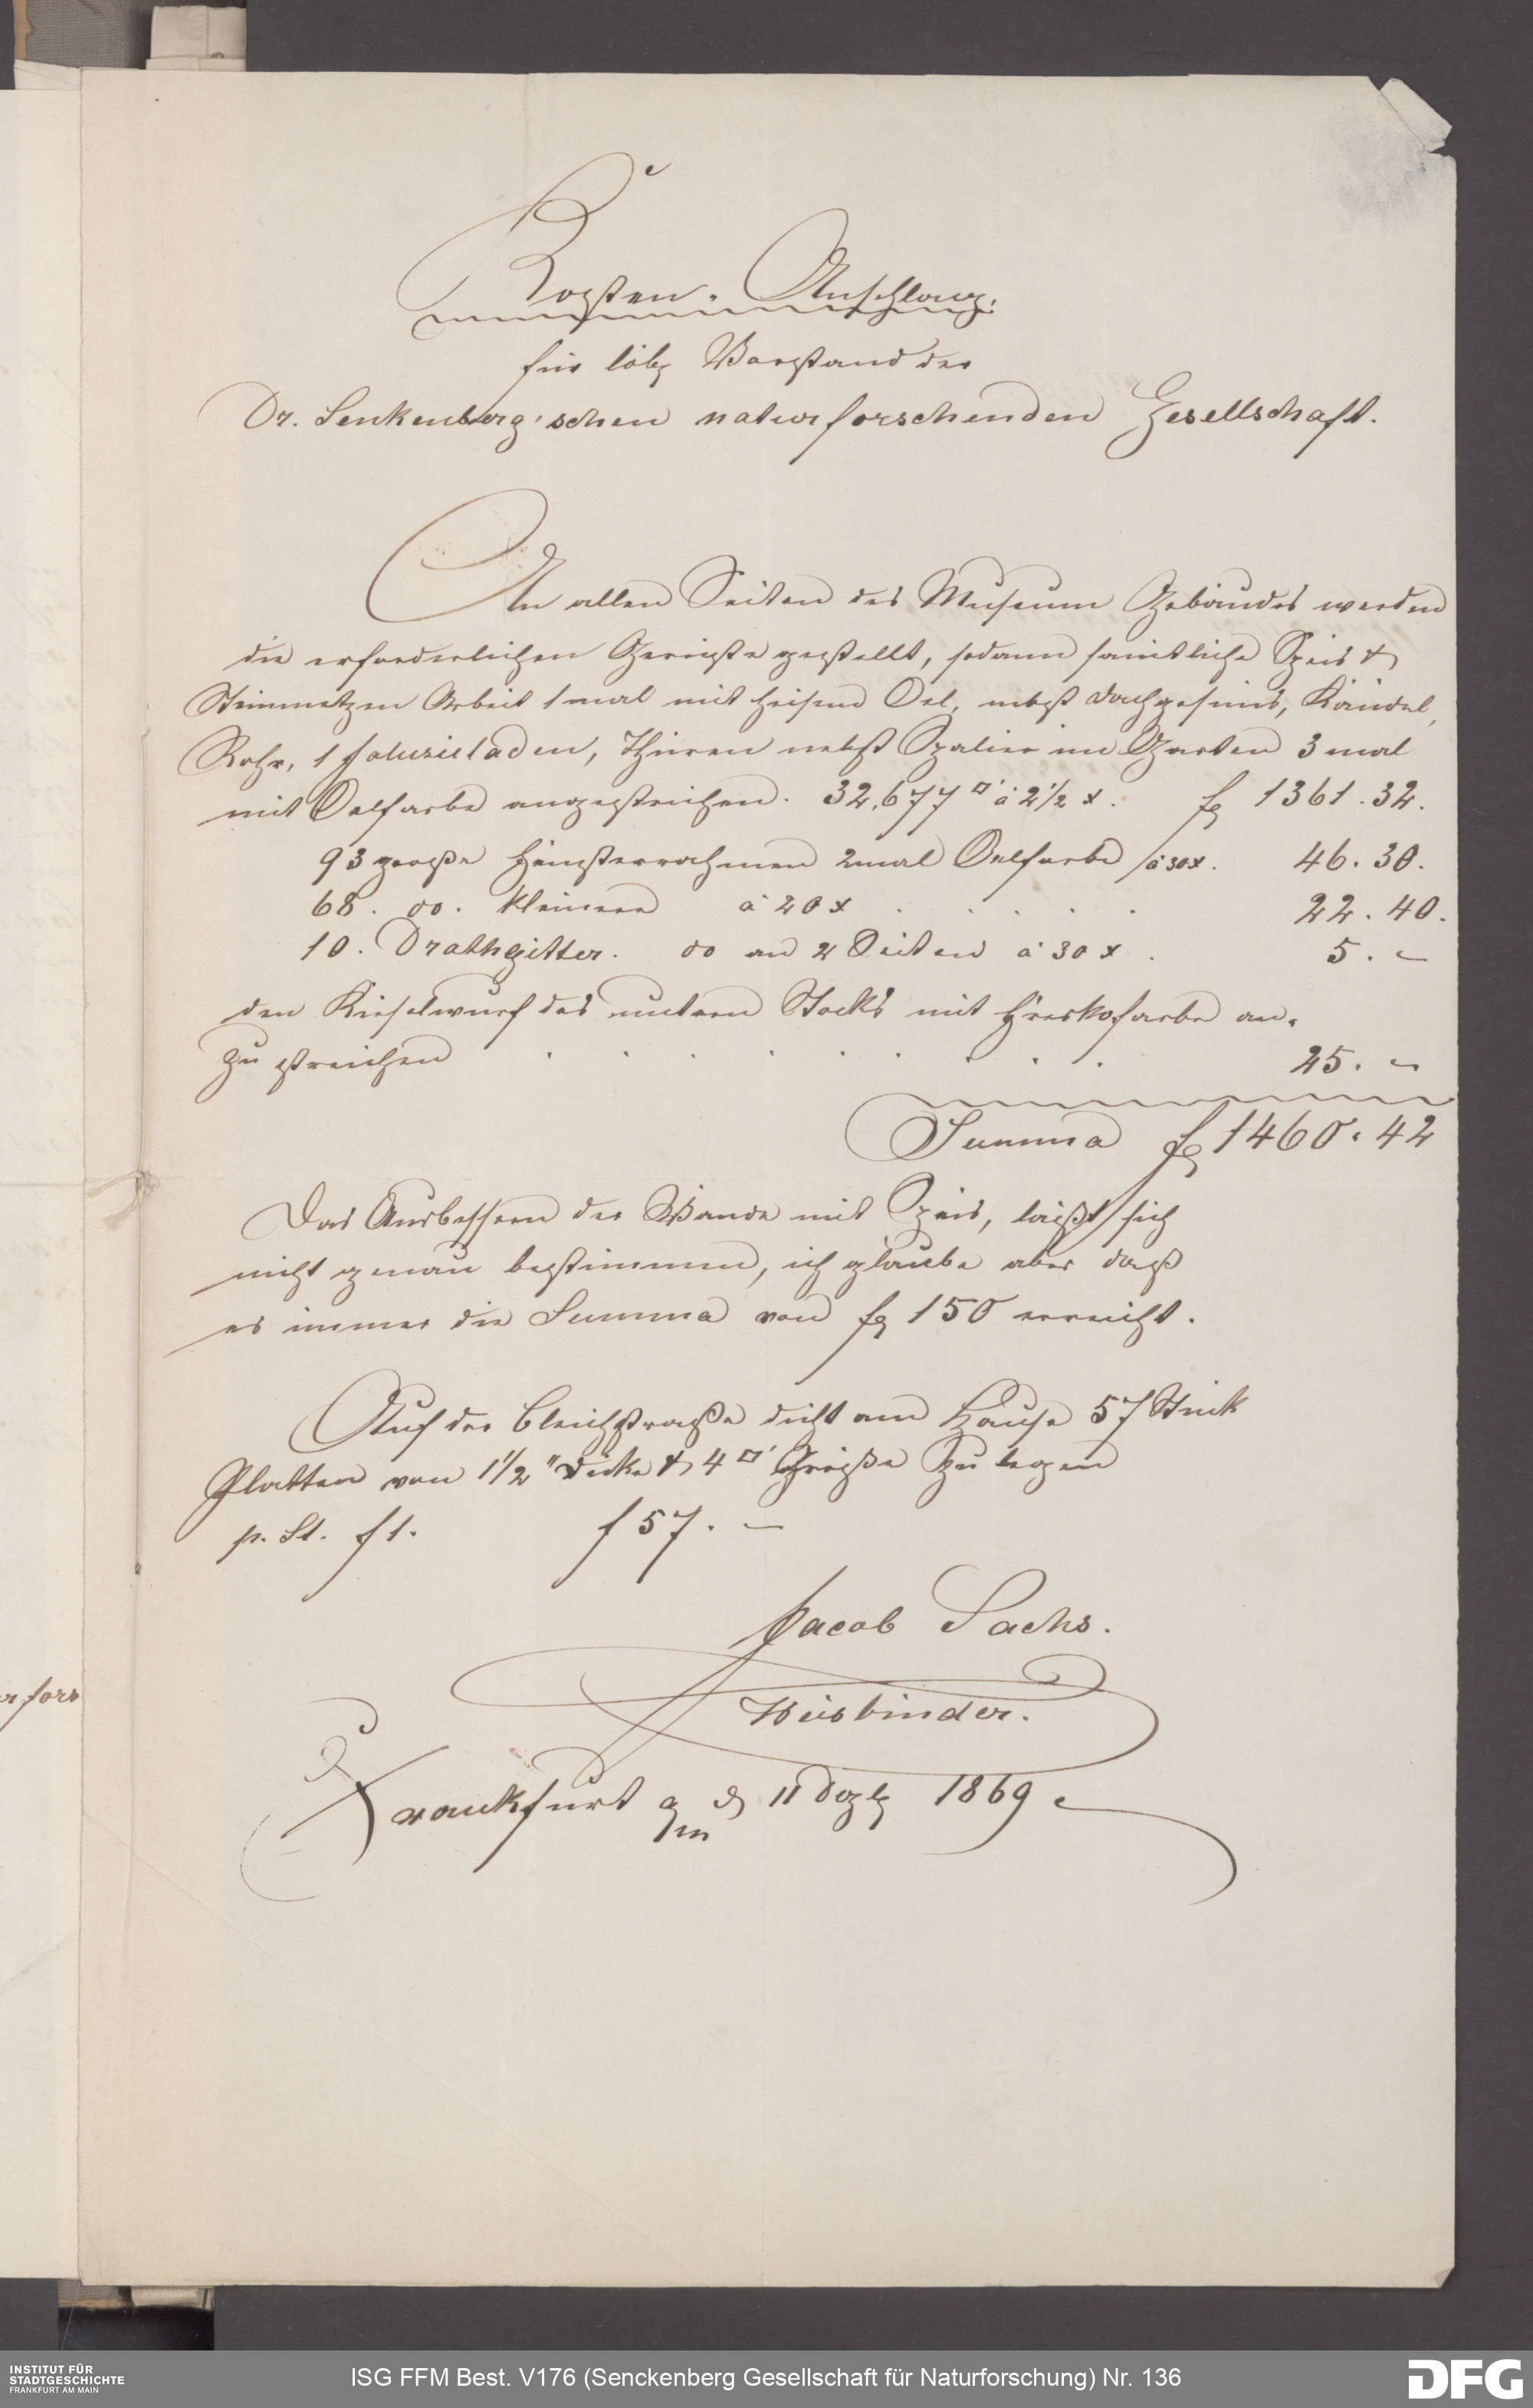 Kosten-Anschlag.
für löbl Vorstand der
Dr. Senkenberg'schen naturforschenden Gesellschaft.
An allen Seiten des Museum Gebäudes werden
die erforderlichen Gerüste gestellt, sodann sämtliche Speis &
Steinmetzen Arbeit 1 mal mit heisem Oel, nebst Dachgesims, Kändel,
Rohr, 1 Jalusieladen, Thüren nebst Spalier im Garten 3 mal
mit Oelfarbe angestrichen. 32,677 □' à 2 1/2 x. fl 1361. 32.
93 große Fensterrahmen 2mal Oelfarbe à 30 x. 46. 30.
68. do. kleinere à 20 x 22. 40.
10. Drathgitter. do an 2 Seiten à 30 x. 5. -
den Kieselwurf des untern Stocks mit Freskofarbe an-
zu streichen 25. -
Summa fl 1460. 42
Das Ausbessern der Wände mit Speis, läßt sich
nicht genau bestimmen, ich glaube aber daß
es immer die Summa von fl 150 erreicht.
Auf der Bleichstraße dicht am Hause 57 Stück
Platten von 1 1/2" Dicke & 4 □' Größe zu legen
p. St. f 1. f 57. -
Jacob Sachs.
Weisbinder.
Frankfurt a/m d 11 Dezb 1869
r fors
INSTITUT FÜR
STADTGESCHICHTE
FRANKFURT AM MAIN
ISG FFM Best. V176 (Senckenberg Gesellschaft für Naturforschung) Nr. 136
DFG